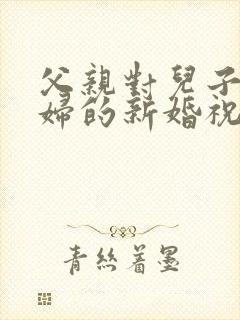 父親對兒子
婦的新婚祝
青絲着墨